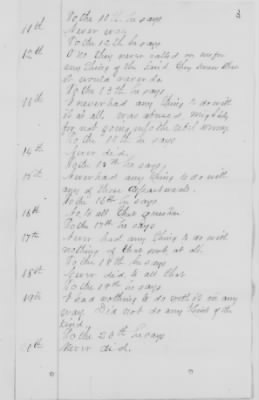 3
To the 10th he says
11th Never was
To the 12th he says
12th O no they never called on me for
any thing of the kind they knew that
it would never do
To the 13th he says
I never had any thing to do with
it at all, was abused mightily
for not going into the rebel army
To the 14th he says
14th Never did
To the 15th he says,
15th Never had any thing to do with
any of those departments.
To the 16th he says
16th No, to all that question
To the 17th he says
17th Never had any thing to do with
nothing of that sort at all.
To the 18th he says
18th Never did to all that
To the 19th he says
19th I had nothing to do with it in any
way. Did not do any thing of the
kind
To the 20th he says
20th Never did.